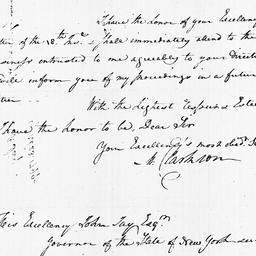 I have the honor of your Excellency
of the 18.th Ins.t I shall immediately attend to the
entrusted to me agreeably to your
inform you of my proceedings in a future
With the highest
I have the honor to be, Dear Sir
Your Excellency's most obed.t
M. Clarkson
His Excellency John Jay Esq.r
Governor of the State of New York